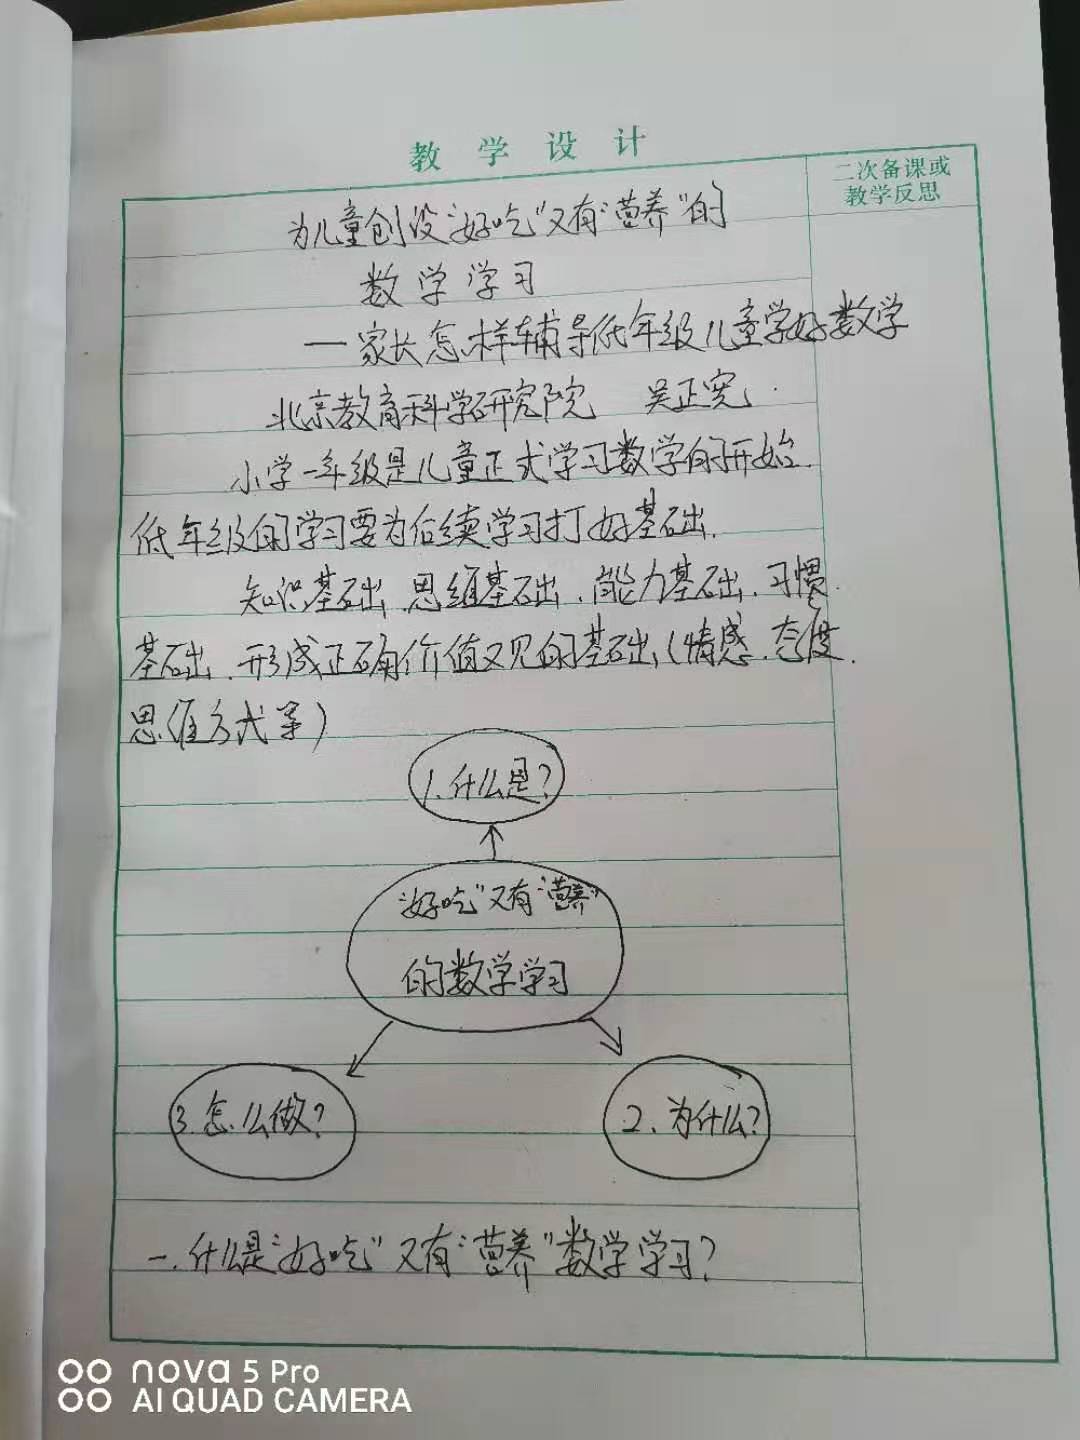 教学设计
二次备课或
教学反思
为儿童创设“好吃”又有“营养”的
数学学习
一家长怎样辅导低年级儿童学好数学
北京教育科学研究院 吴正宪.
小学一年级是儿童正式学习数学的开始.
低年级的学习要为后续学习打好基础.
知识基础、思维基础、能力基础、习惯
基础、形成正确价值观的基础(情感、态度、
思维方式等)
1.什么是?
“好吃”又有“营养”
的数学学习
3.怎么做?
2、为什么?
一、什么是“好吃”又有“营养”数学学习?
nova 5 Pro
AI QUAD CAMERA